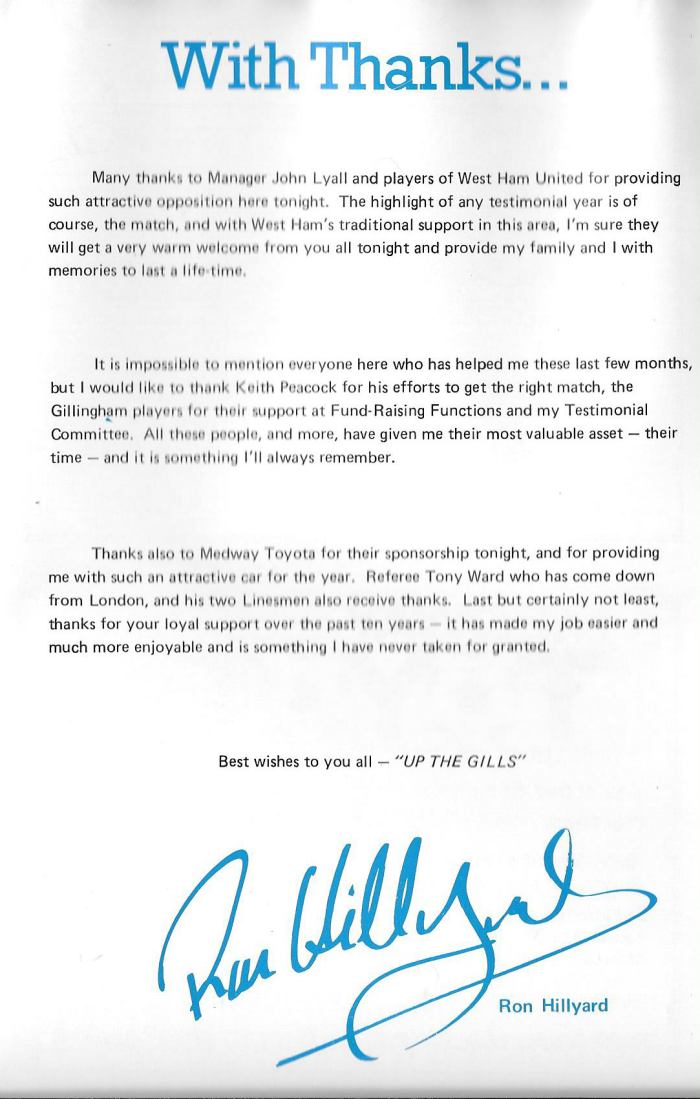 With Thanks...
Many thanks to Manager John Lyall and players of West Ham United for providing
such attractive opposition here tonight. The highlight of any testimonial year is of
course, the match, and with West Ham's traditional support in this area, I'm sure they
will get a very warm welcome from you all tonight and provide my family and I with
memories to last a life-time.
It is impossible to mention everyone here who has helped me these last few months,
but I would like to thank Keith Peacock for his efforts to get the right match, the
Gillingham players for their support at Fund-Raising Functions and my Testimonial
Committee. All these people, and more, have given me their most valuable asset — their
time — and it is something I'll always remember.
Thanks also to Medway Toyota for their sponsorship tonight, and for providing
me with such an attractive car for the year. Referee Tony Ward who has come down
from London, and his two Linesmen also receive thanks. Last but certainly not least,
thanks for your loyal support over the past ten years — it has made my job easier and
much more enjoyable and is something I have never taken for granted.
Best wishes to you all — "UP THE GILLS"
Ron Hillyard
Ron Hillyard